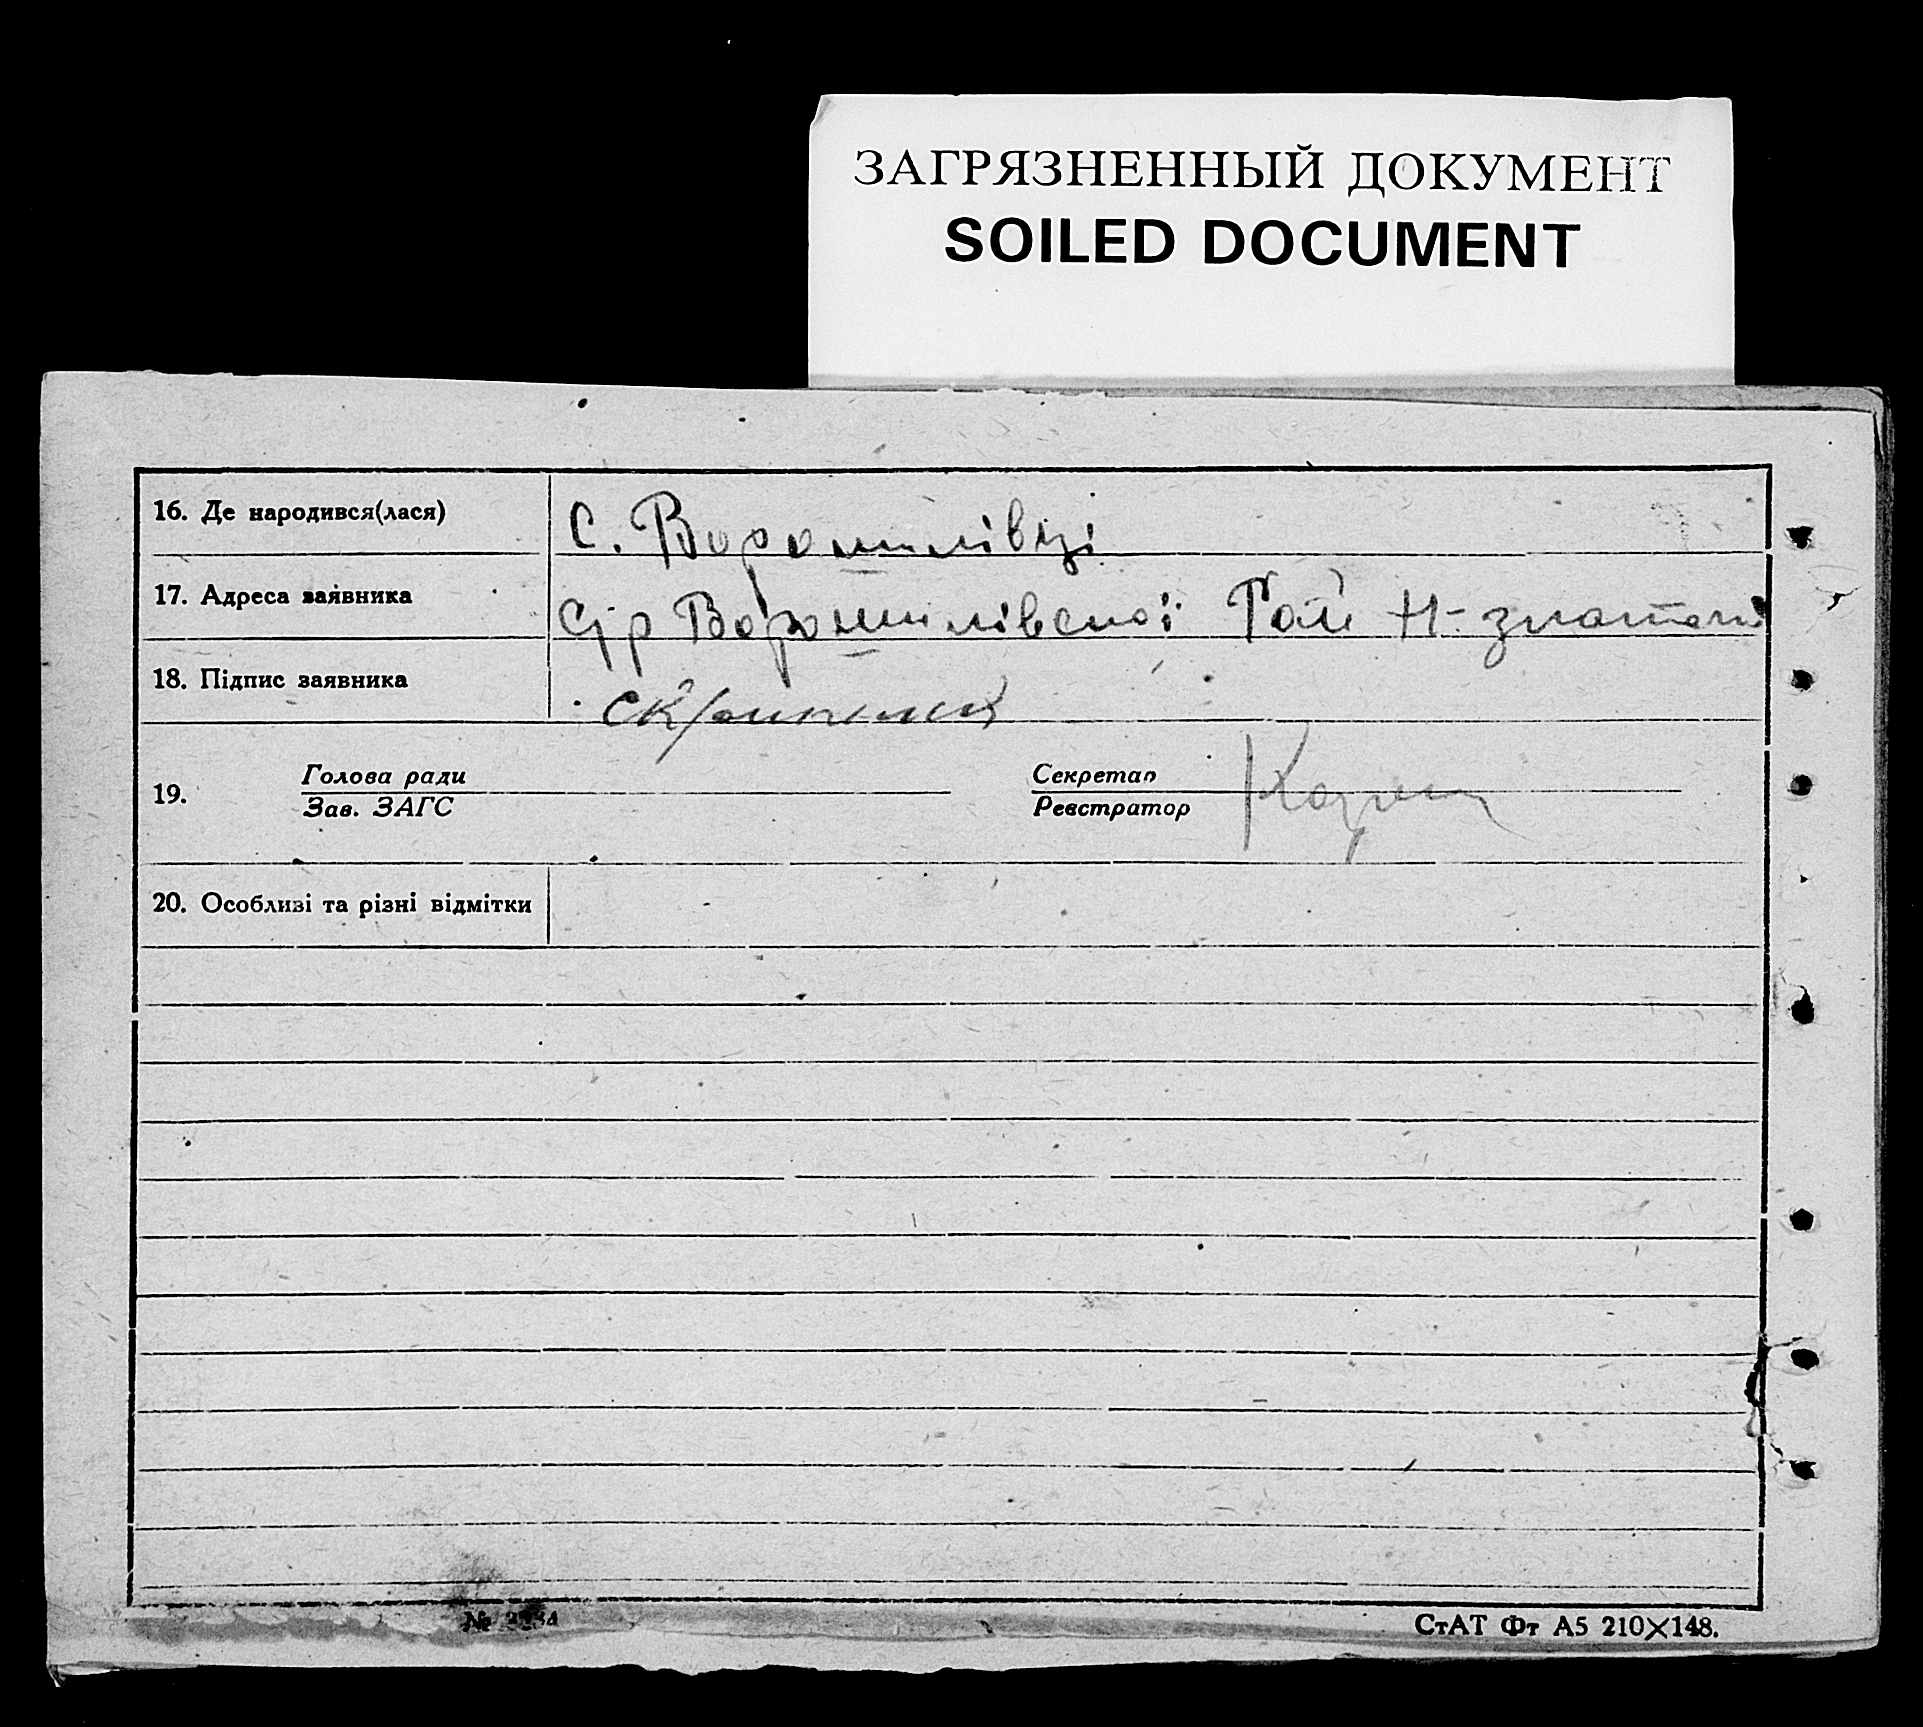 ЗАГРЯЗНЕННЫЙ ДОКУМЕНТ
SOILED DOCUMENT
16. Де народився(лася) с. Ворошилівці
17. Адреса заявника С/р Ворошилівської Рай
18. Підпис заявника
19. Голова ради
Зав. ЗАГС
Секретар
Реєстратор
20. Особливі та різні відмітки
№
СтАТ Фт А5 210×148.